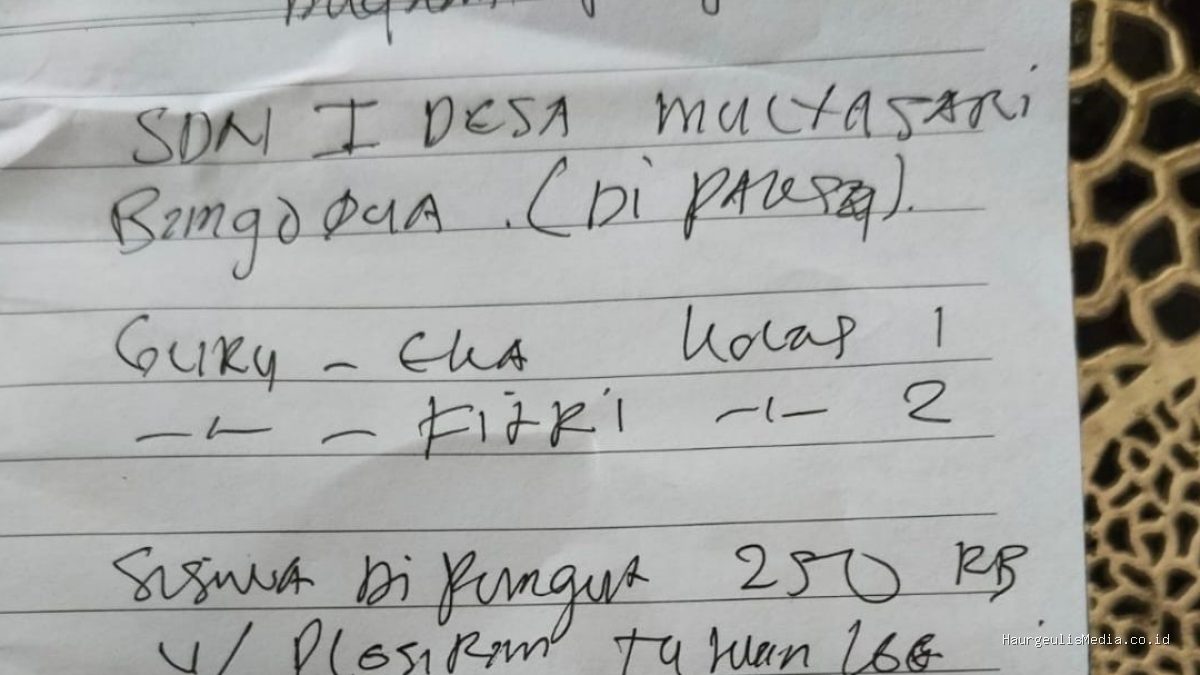 SDN I DESA MULYASARI
BangoDUA . (Di PAKSA).
GURU - EKA Kelas 1
-"- - FiTRi -"- 2
Siswa Di Pungut 250 RB
U/ PLESiRan
HaurgeulisMedia.co.id